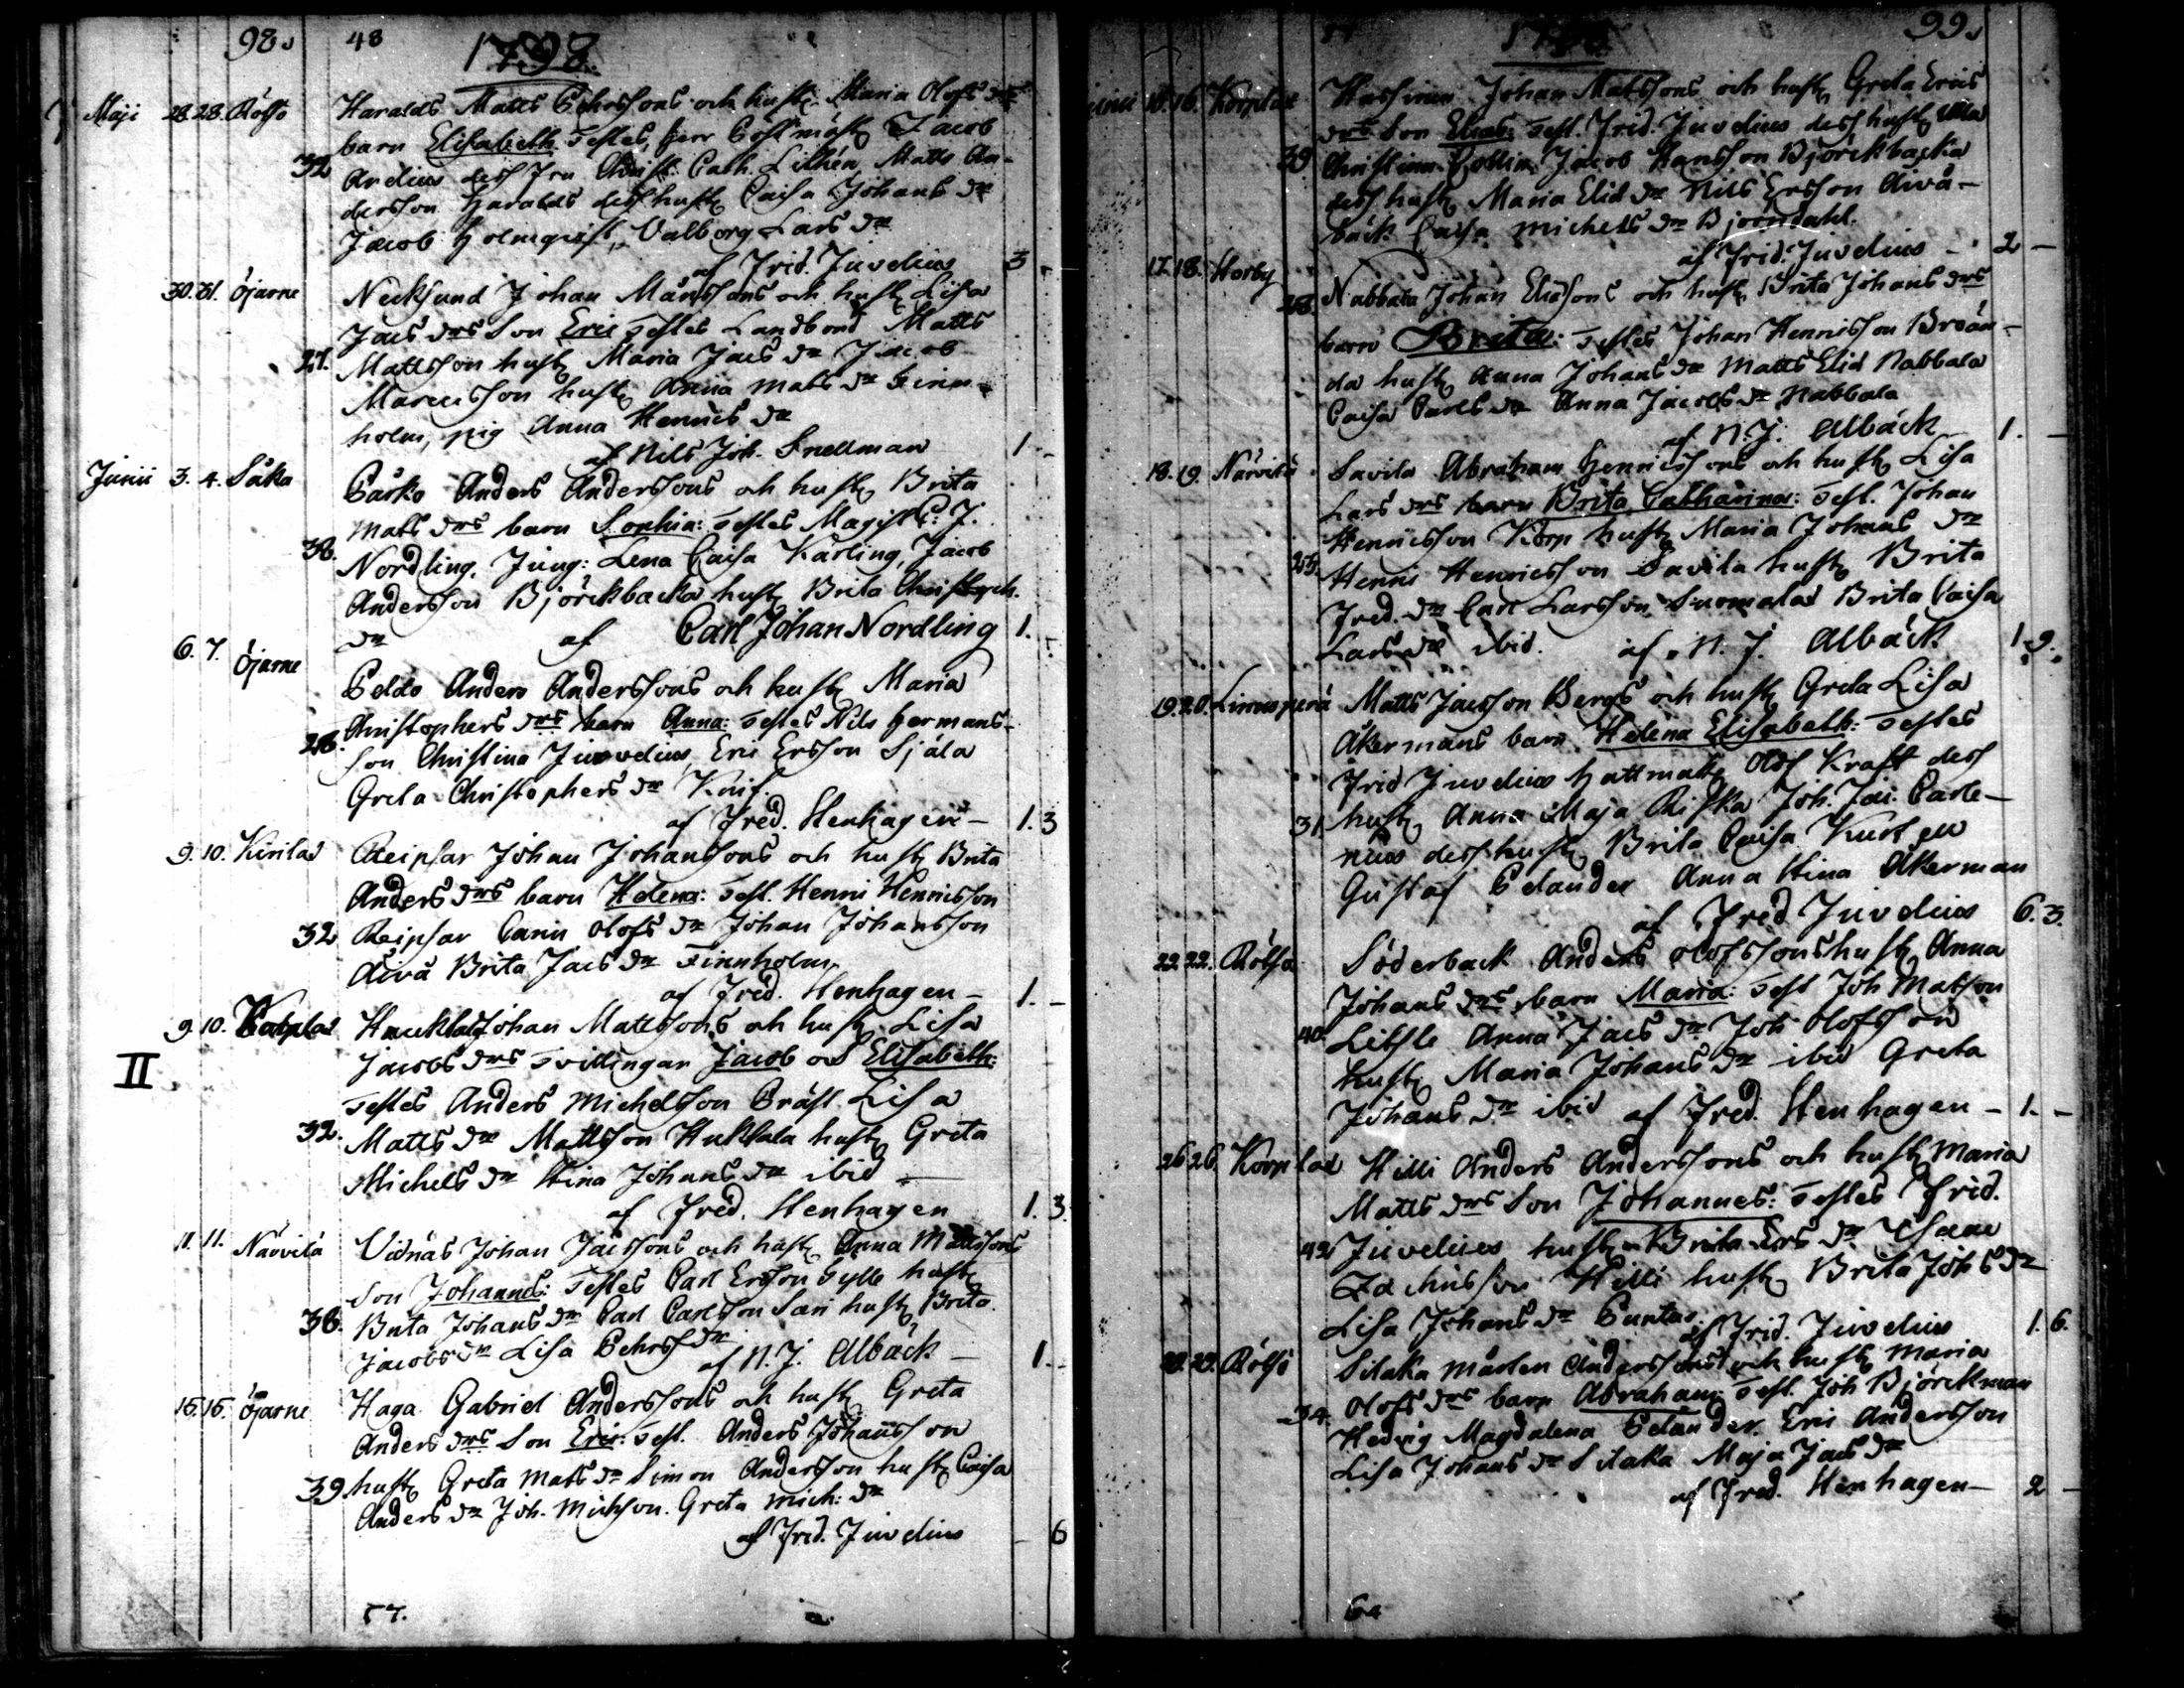 98.
48
1798.
Maji 28. 28. Rölsö Haralds Matts Pehrssons och hust. Maria Olofs dr
barn Elisabeth: Testes, Herr Postmäst. Jacob
32 Ardius dess Fru Christ. Cath. Lithén, Matts An-
dersson Haralds dess hust. Caisa Johans dr
Jacob Holmqvist, Valborg Lars dr
af Frid. Juvelius 3 -
30. 31. Öjarne Necksund Johan Månssons och hust. Lisa
Jacs drs Son Eric Testes Landbond Matts
27. Mattsson hust. Maria Jacs dr Jacob
Marcusson hust. Anna Mats dr Finn-
holm, pig Anna Henrics dr
af Nils Joh. Snellman 1 -
Junii 3. 4. Såka Påsko Anders Anderssons och hust. Brita
Mats drs barn Sophia: Testes Magist. C. J.
38. Nordling, Jung: Lena Caisa Kårling, Jacob
Andersson Björckbacka hust. Brita Christoph.
dr af Carl Johan Nordling 1. -
6. 7. Öjarne Peldo Anders Anderssons och hust. Maria
Christophers drs barn Anna: Testes Nils Hermans-
28. son Christina Juvelius, Eric Ersson Själa
Greta Christophers dr Knif.
af Fred. Stenhagen - 1. 3
9. 10. Kirilax Reipsar Johan Johanssons och hust. Brita
Anders drs barn Helena: Test. Henric Henricsson
32 Reipsar Carin Olofs dr Johan Johansson
Åivå Brita Jacs dr Finnholm
af Fred. Stenhagen - 1. -
9. 10. Korplax Huuklax Johan Mattssons och hust. Lisa
II Jacobs drs Tvillingar Jacob och Elisabeth:
Testes Anders Michelsson Präst Lisa
32. Matts dr Mattsson Huklala hust. Greta
Michels dr Stina Johans dr ibid -
af Fred. Stenhagen 1. 3.
11. 11. Närvilä Vidnäs Johan Jacssons och hust. Anna Mattssons
Son Johannes: Testes Carl Ersson Gylle hust.
38. Brita Johans dr Carl Carlsson Sari hust. Brita
Jacobs dr Lisa Pehrs dr
af N. J. Albäck - 1 -
15. 15. Öjarne Haga Gabriel Anderssons och hust. Greta
Anders drs Son Eric: Test. Anders Johansson
39 hust. Greta Mats dr Simon Andersson hust. Caisa
Anders dr Joh. Michson. Greta Mich: dr
af Frid. Juvelius - 6
57.
99.
16. 16. Korplax Hassinen Johan Matssons och hust. Greta Erics
drs Son Elias: Test. Frid. Juvelius dess hust. Ulla
39 Christina Jacob Hansson Björckbacka
dess hust. Maria Elid dr Nils Ersson Åivå-
bäck Caisa Michels dr Björndahl.
af Frid. Juvelius - 2 -
17. 18. Storby Nabbala Johan Eliassons och hust. Brita Johans drs
28. barn Brita: Testes Johan Henricsson Broän-
da hust. Anna Johans dr Matts Elid Nabbala
Caisa Carls dr Anna Jacobs dr Nabbala
af N. J. Albäck 1. -
18. 19. Närvilä Savila Abraham Henricssons och hust. Lisa
Lars drs barn Brita Catharina: Test. Johan
Henricsson Korp hust. Maria Johans dr
25. Henric Henricsson Savila hust. Brita
Fred. dr Carl Larsson Suomalax Brita Caisa
Lars dr ibid. af N. J. Albäck 1. 9.
19. 20. Linnusperä Matts Jacsson Bergs och hust. Greta Lisa
Åkermans barn Helena Elisabeth: Testes
Frid Juvelius Hattmak. Olof Kraft dess
31 hust. Anna Maja Riska Joh. Jac. Carle-
nius dess hust. Brita Caisa Kurtén
Gustaf Pelander Anna Stina Åkerman
af Fred Juvelius 6. 3.
22. 22. Rölsö Söderback Anders Olofssons hust. Anna
Johans drs barn Maria: Test Joh Matson
40. Litsle Anna Jacs dr Joh Olofsson
hust. Maria Johans dr ibid Greta
Johans dr ibid af Fred. Stenhagen - 1. -
26 26. Korplax Hilli Anders Anderssons och hust. Maria
Matts drs Son Johannes: Testes Frid.
42 Juvelius hust. Brita Ers dr Isaac
Zachrisson Hilli hust. Brita Johs dr
Lisa Johans dr Puntus.
af Frid. Juvelius 1. 6.
29. 29. Rölsö Silaka Mårten Anderssons och hust. Maria
34. Olofs drs barn Abraham: Test. Joh Björckman
Hedvig Magdalena Pelander. Eric Andersson
Lisa Johans dr Silaka Maja Jacs dr
af Fred. Stenhagen - 2 -